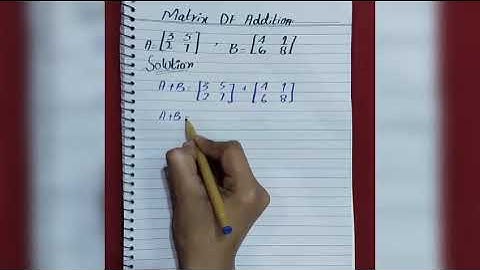 Matrix Of Addition
A = [3 5 , B = [4 1
2 7] 6 8]
Solution
A+B = [3 5 + [4 1
2 7] 6 8]
A+B =